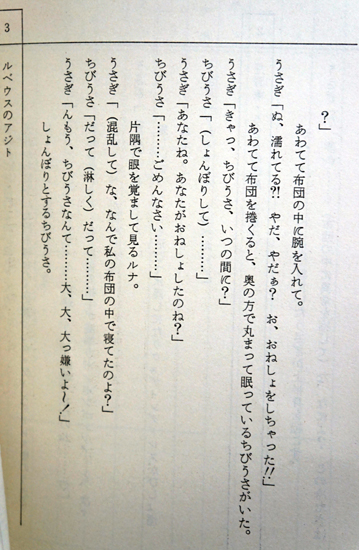 ？」
あわてて布団の中に腕を入れて。
うさぎ「ぬ、濡れてる?! やだ、やだぁ？ お、おねしょをしちゃった!!」
あわてて布団を捲くると、奥の方で丸まって眠っているちびうさがいた。
うさぎ「きゃっ、ちびうさ、いつの間に？」
ちびうさ「（しょんぼりして）………」
うさぎ「あなたね。あなたがおねしょしたのね？」
ちびうさ「………ごめんなさい………」
片隅で眼を覚まして見るルナ。
うさぎ「（混乱して）な、なんで私の布団の中で寝てたのよ？」
ちびうさ「だって（淋しく）だって………」
うさぎ「んもう、ちびうさなんて………大、大、大っ嫌いよ〜！」
しょんぼりとするちびうさ。
3
ルベウスのアジト